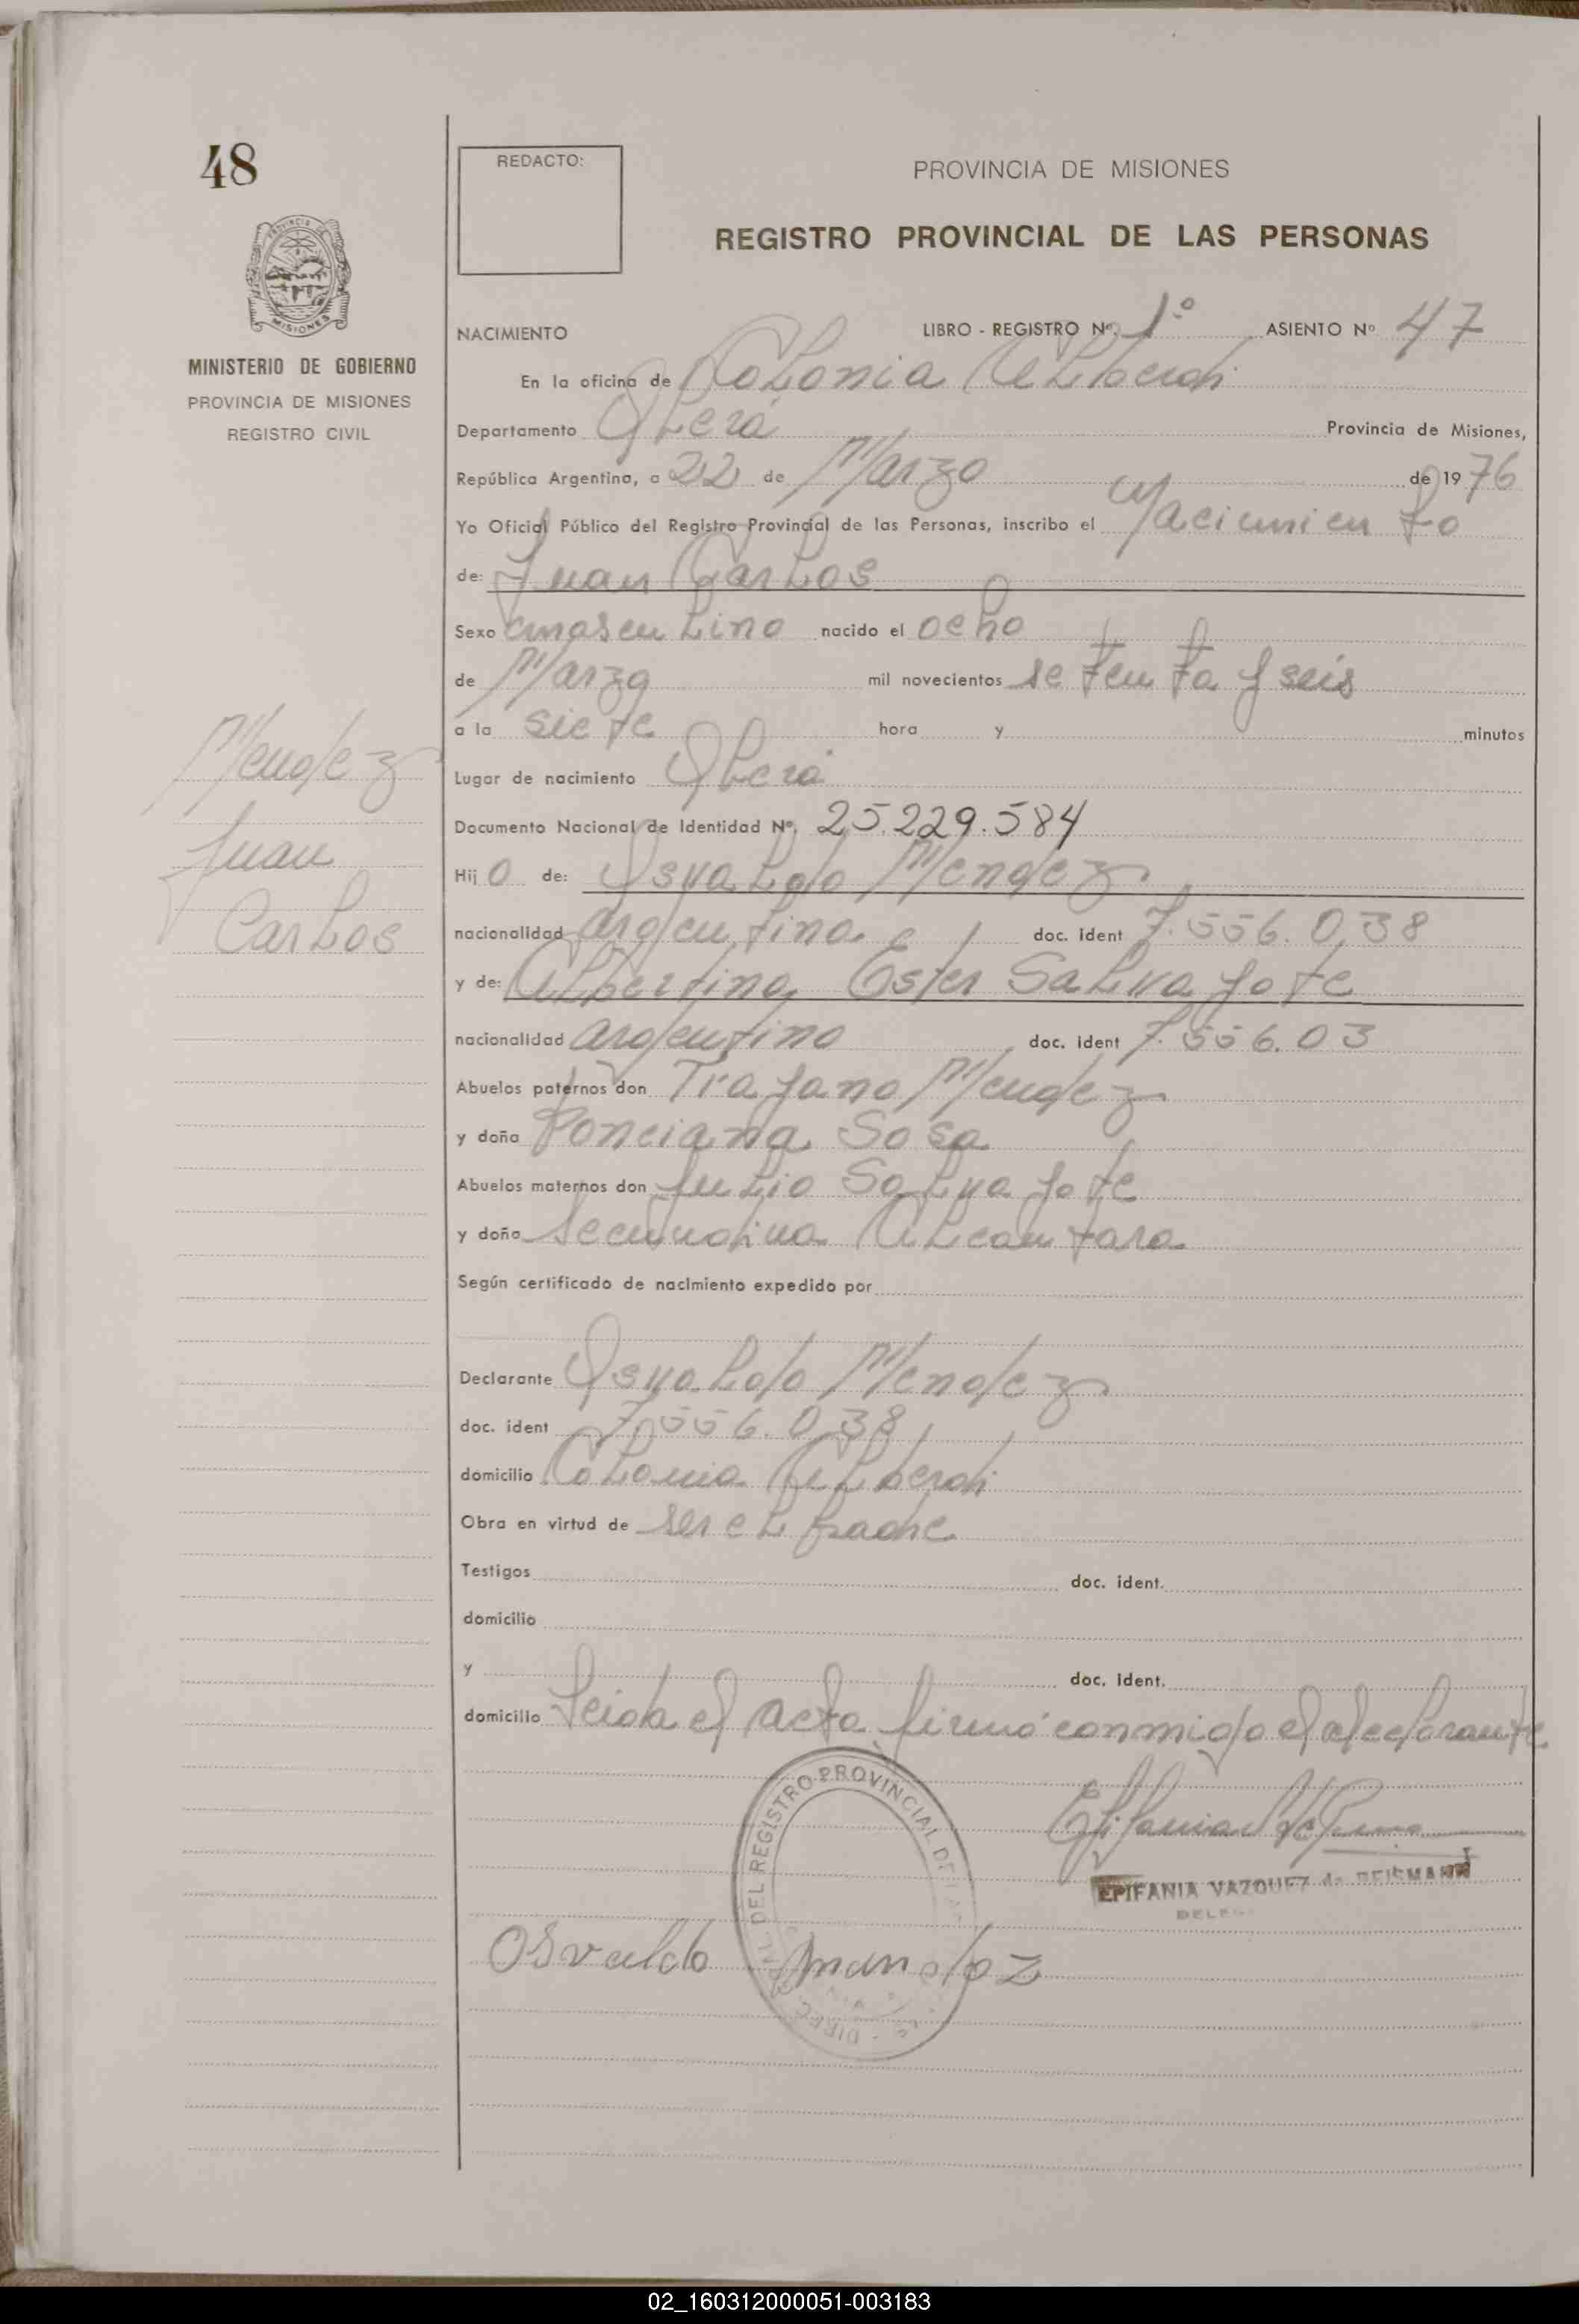 48
REDACTO:
PROVINCIA DE MISIONES
REGISTRO PROVINCIAL DE LAS PERSONAS
MISIONES
MINISTERIO DE GOBIERNO
PROVINCIA DE MISIONES
REGISTRO CIVIL
NACIMIENTO LIBRO - REGISTRO Nº. 1º ASIENTO Nº 47
En la oficina de Colonia Alberdi
Departamento Oberá Provincia de Misiones,
República Argentina, a 22 de Marzo de 1976
Yo Oficial Público del Registro Provincial de las Personas, inscribo el Nacimiento
de: Juan Carlos
Sexo masculino nacido el ocho
de Marzo mil novecientos setenta y seis
a la siete hora y minutos
Lugar de nacimiento Oberá
Documento Nacional de Identidad Nº. 25.229.584
Hijo de: Osvaldo Mendez
nacionalidad argentina doc. ident 7.556.038
y de: Albertina Ester Salvagote
nacionalidad argentino doc. ident 7.556.03
Abuelos paternos don Trajano Mendez
y doña Ponciana Sosa
Abuelos maternos don Julio Salvagote
y doña Secundina Alcantara
Según certificado de nacimiento expedido por
Declarante Osvaldo Mendez
doc. ident 7.556.038
domicilio Colonia Alberdi
Obra en virtud de ser el padre
Testigos doc. ident.
domicilio
y doc. ident.
domicilio Leida el acta firmó conmigo el declarante
Mendez
Juan
Carlos
DEL REGISTRO PROVINCIAL DE
DIREC
EPIFANIA VAZQUEZ de REISMANN
DELEG
Osvaldo Mandoz
02_160312000051-003183